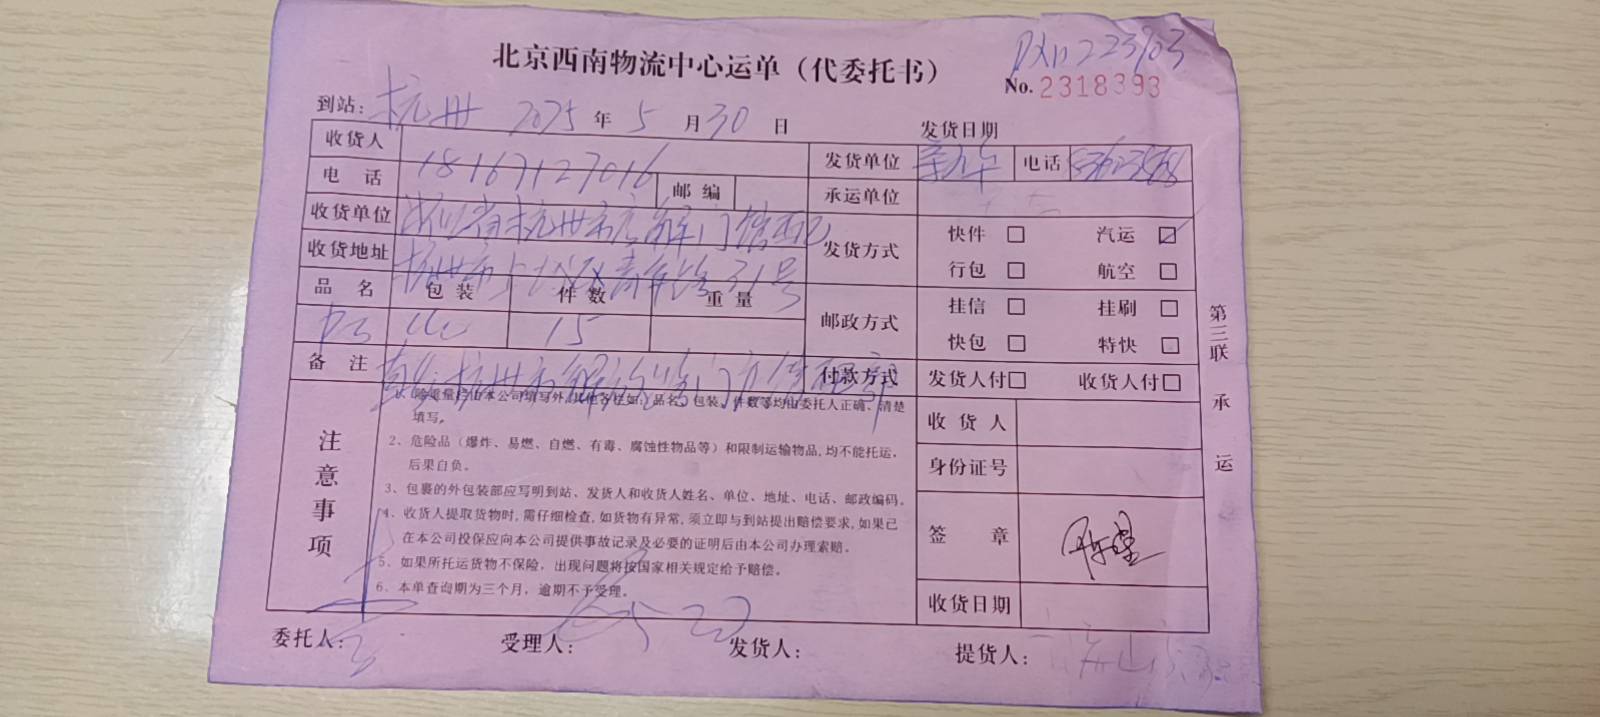 北京西南物流中心运单（代委托书）
No. 2318393
到站：杭州 2025 年 5 月 30 日 发货日期
收货人
发货单位 电话
电话 18167127016 邮编
承运单位
收货单位 浙江省杭州市
收货地址 杭州市上城区青年路31号
发货方式 快件 □ 汽运 ☑
行包 □ 航空 □
品名 包装 件数 重量
15
邮政方式 挂信 □ 挂刷 □
快包 □ 特快 □
备注
付款方式 发货人付□ 收货人付□
注意事项
除重量栏由本公司填写外,其他各栏如：品名、包装、件数等均由委托人正确、清楚
填写。
2、危险品（爆炸、易燃、自燃、有毒、腐蚀性物品等）和限制运输物品,均不能托运，
后果自负。
3、包裹的外包装部应写明到站、发货人和收货人姓名、单位、地址、电话、邮政编码。
4、收货人提取货物时,需仔细检查,如货物有异常,须立即与到站提出赔偿要求,如果已
在本公司投保应向本公司提供事故记录及必要的证明后由本公司办理索赔。
5、如果所托运货物不保险，出现问题将按国家相关规定给予赔偿。
6、本单查询期为三个月，逾期不予受理。
收货人
身份证号
签章
收货日期
第三联 承运
委托人： 受理人： 发货人： 提货人：